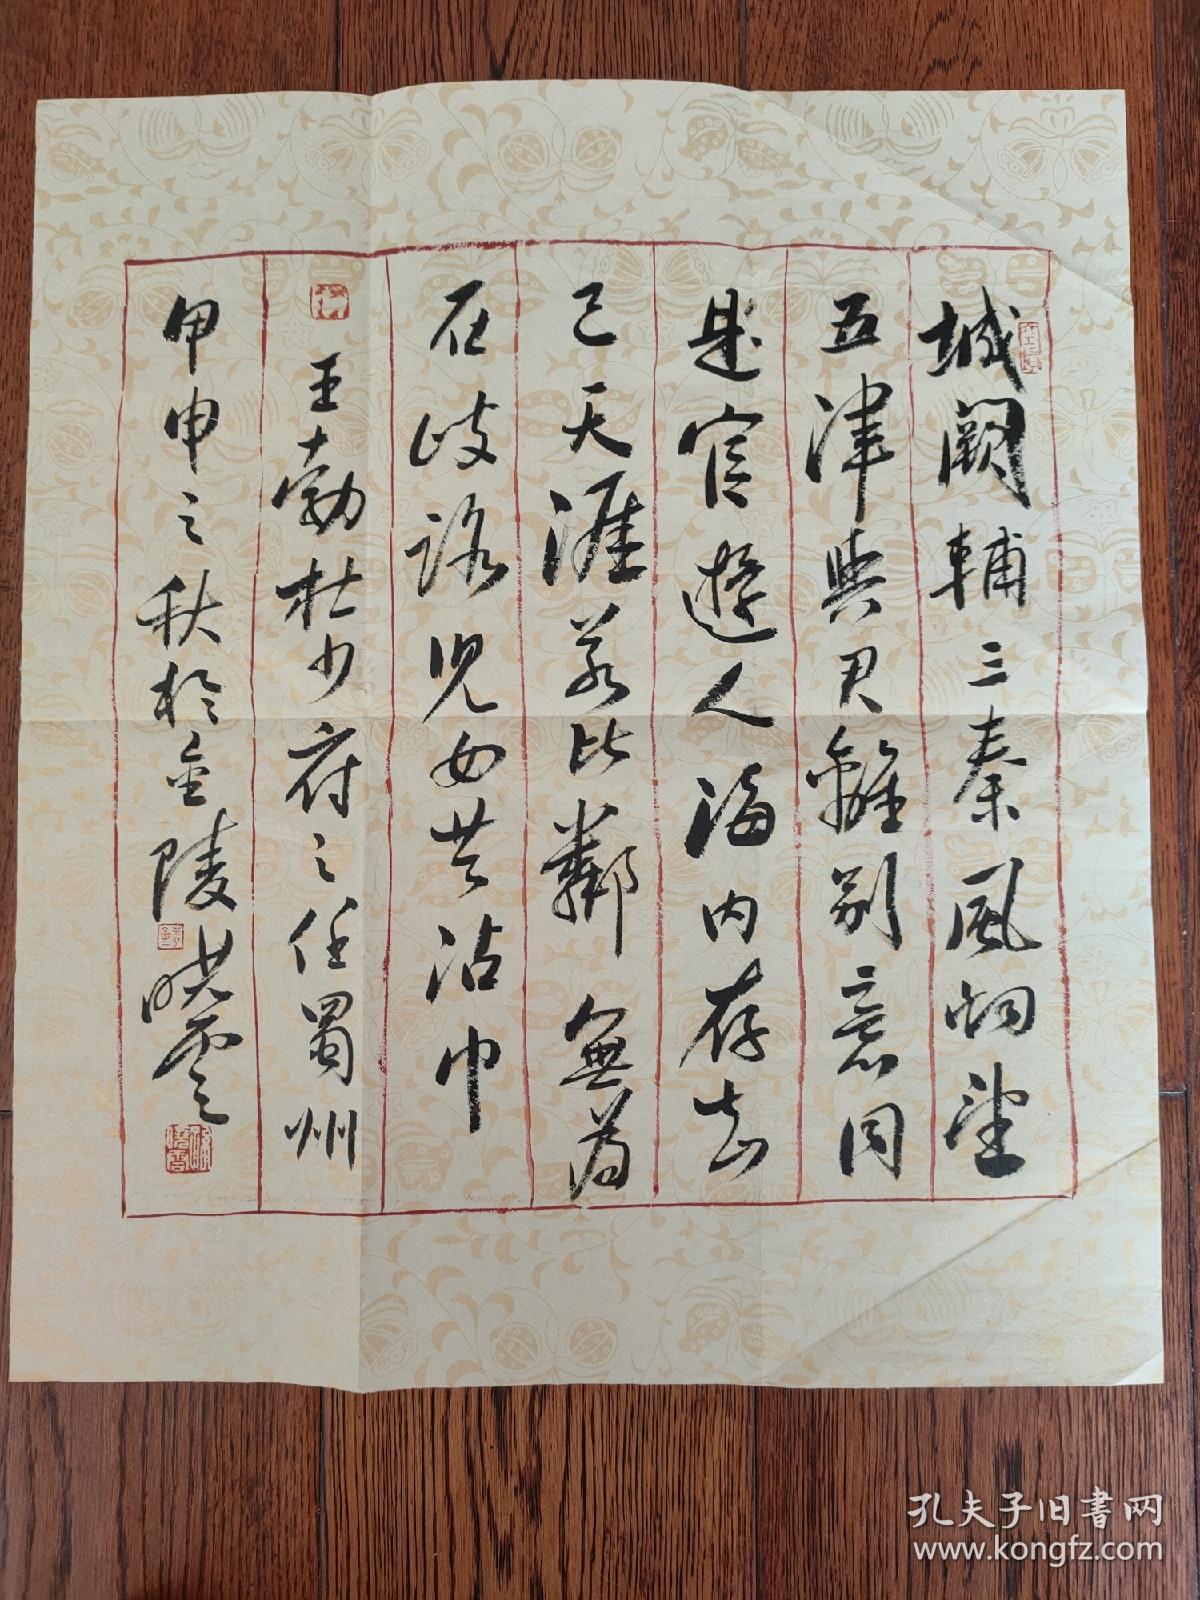 城闕輔三秦風烟望
五津與君離別意同
是宦遊人海内存知
己天涯若比鄰無為
在歧路兒女共沾巾
王勃杜少府之任蜀州
甲申之秋於金陵曉雲
孔夫子旧書网
www.kongfz.com